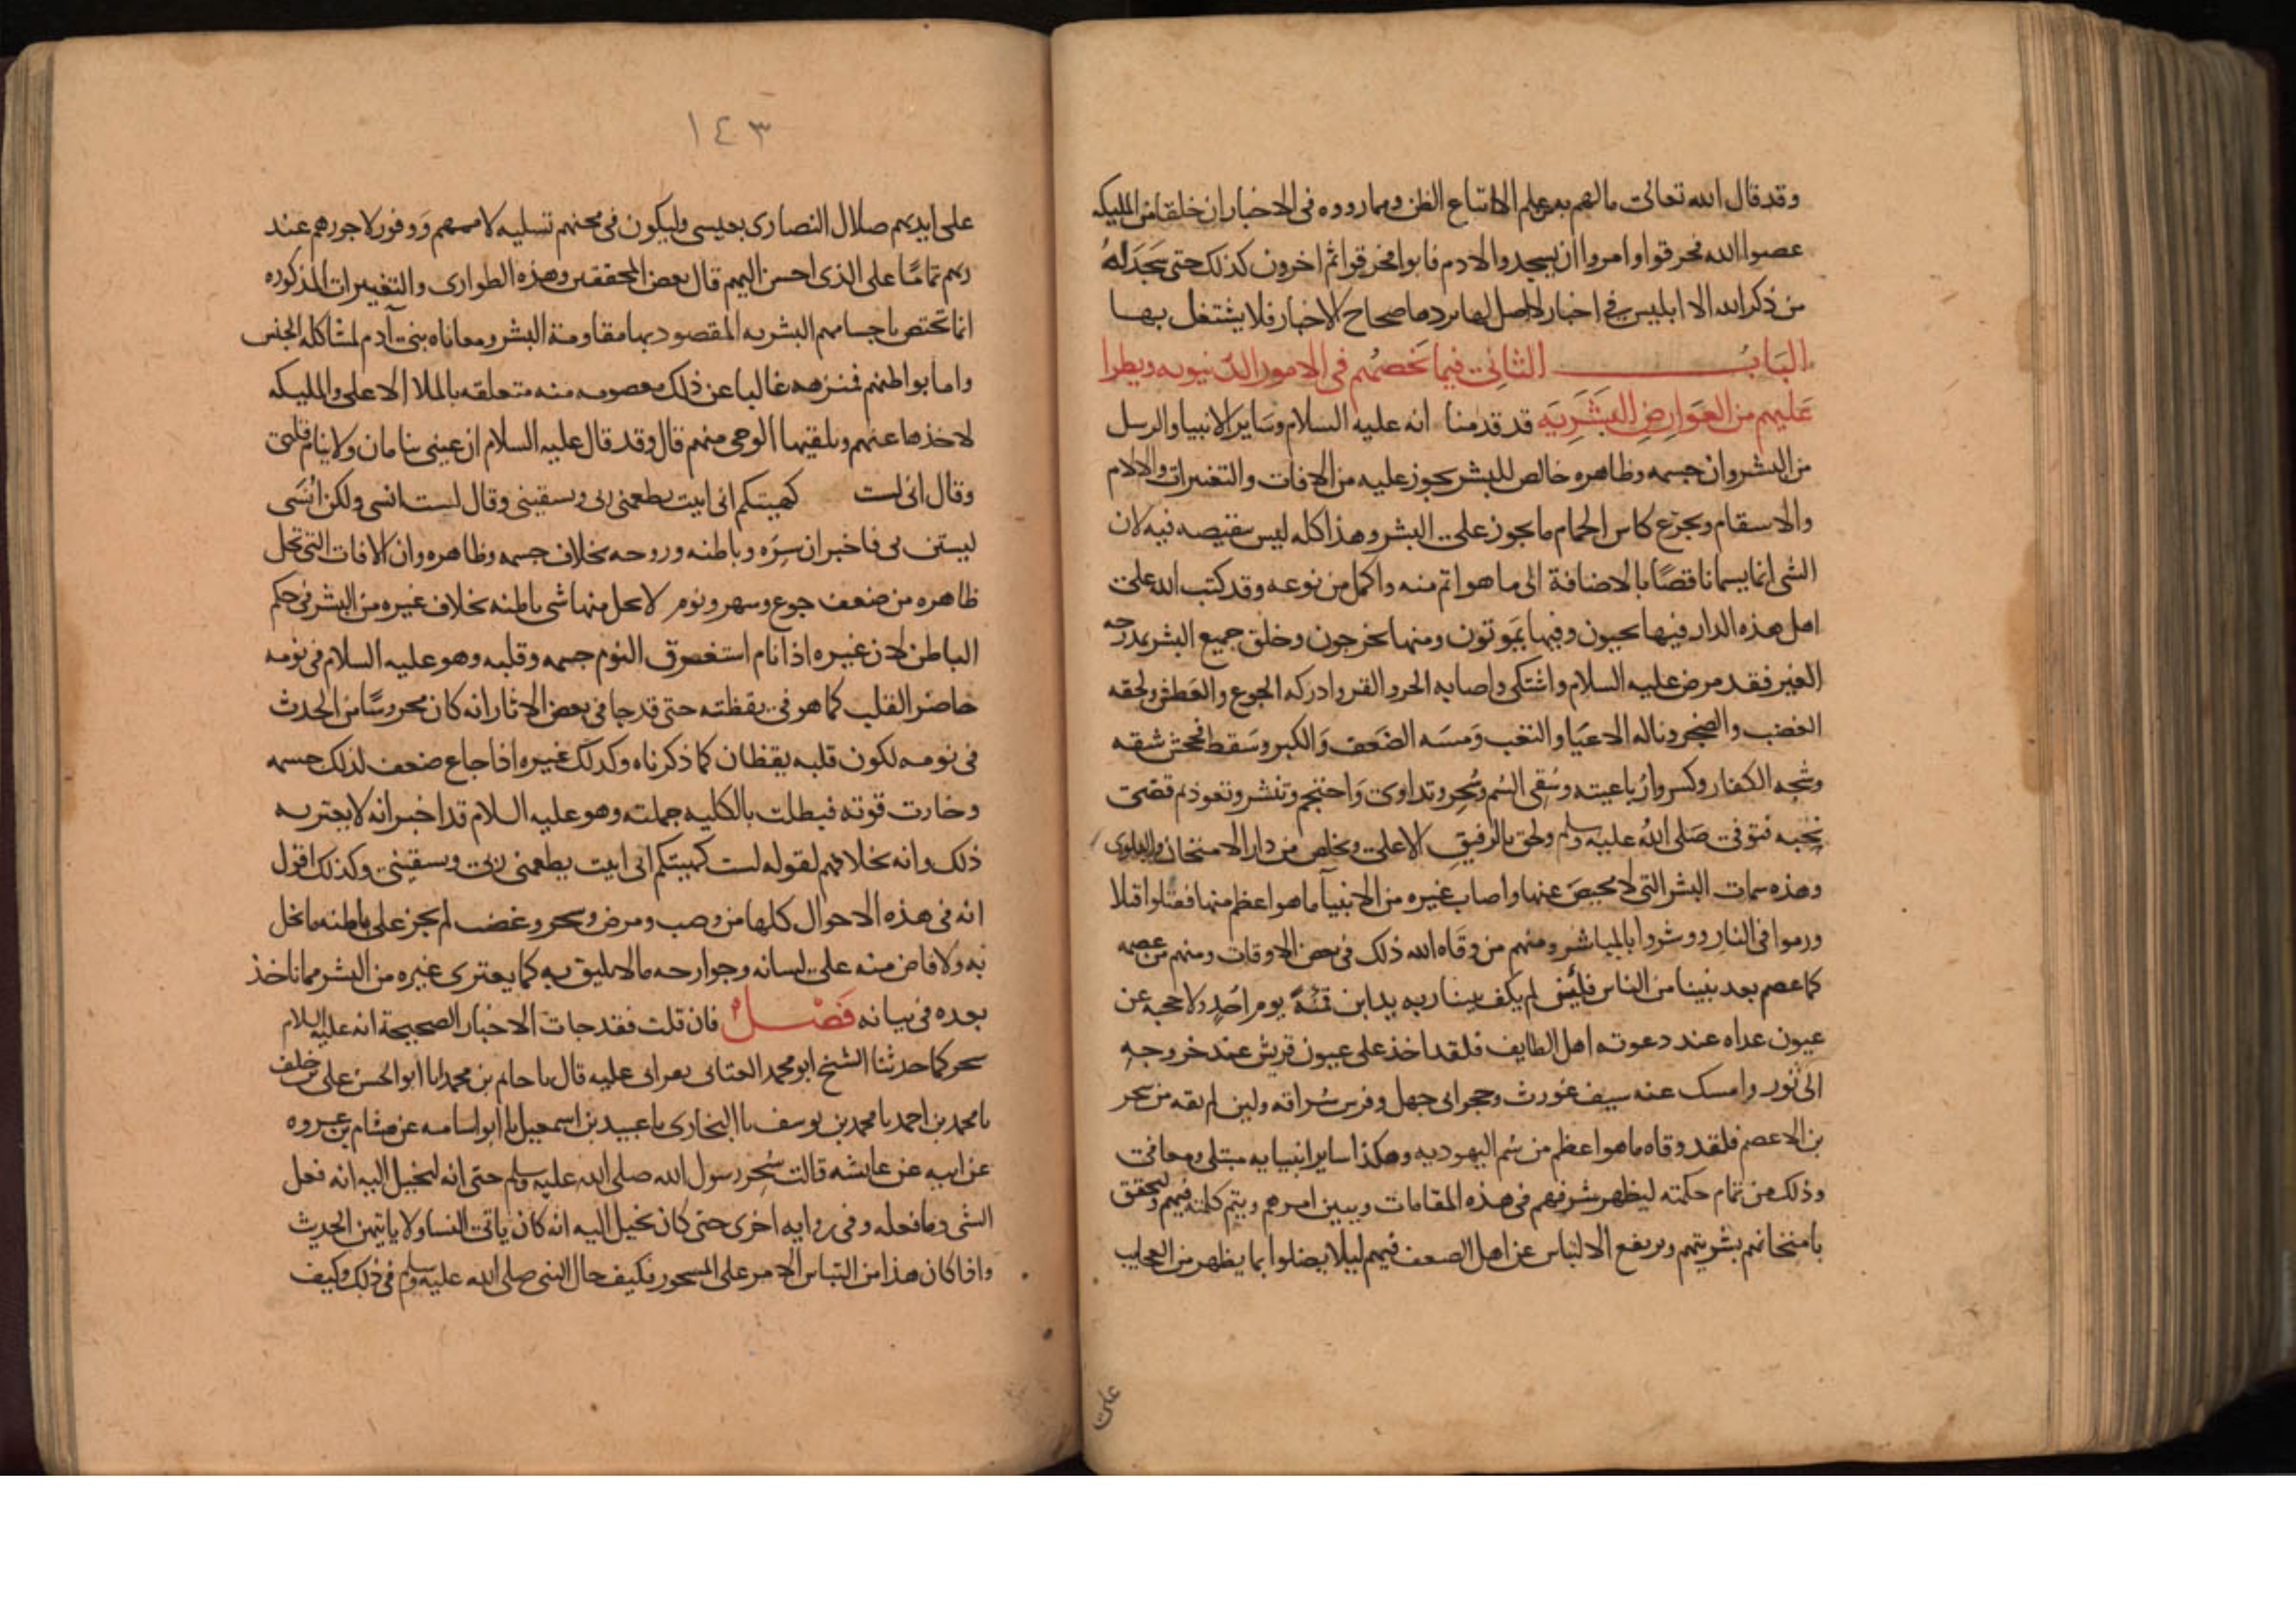 وقد قال الله تعالى ما لهم به من علم الا اتباع الظن ومما رووه فى الاخبار ان خلقا من المليكه
عصوا الله فحرقوا وامروا ان يسجدوا لادم فابوا فحرقوا ثم اخرون كذلك حتى سَجَدَ لهُ
من ذكر الله الا ابليس فى اخبار لا اصل لها بردها صحاح الاخبار فلا يشتغل بهـا
البَابُ الثانى فيما يَخصُهُم فى الامور الدّنيويه ويطرا
عَليهم من العَوَارِضِ البَشَرِيَه قد قدمنا انه عليه السلام وسَاير الانبيا والرسل
من البشر وان جسمه وظاهره خالص للبشر يجوز عليه من الافات والتغيرات والالام
والاسقام وتجرّع كاس الحمام ما يجوز على البشر وهذا كله ليس بنقيصه فيه لان
الشى انما يسما ناقصًا بالاضافة الى ما هو اتم منه واكمل من نوعه وقد كتب الله على
اهل هذه الدار فيها يحيون وفيها يمَوتون ومنها يخرجون وخلق جميع البشر بمدرجه
الغير فقد مرض عليه السلام واشتكى واصابه الحر والقر وادركه الجوع والعَطش ولحقه
الغضب والضجر وناله الاعيَا والتعب وَمسَه الضَعف وَالكبر وسَقط فجحش شقه
وشجه الكفار وكسروا رُباعيته وسُقى السُم وسُحِر وتداوى وَاحتجم وتنشر وتعوذ ثم قضَى
نحبه فتوفى صَلى اللهُ عليه وسلم ولحق بالرفيقِ الاعلى وتخلص من دار الامتحان والبلوى
وهذه سمات البشر التى لا محيصَ عنها واصاب غيره من الانبيآ ما هو اعظم منها فقتلوا قتلا
ورموا فى النار ووشروا بالمياشر ومنهم من وقَاه الله ذلك فى بعض الاوقات ومنهم من عصمه
كما عصم بعد نبينا من الناس فلَئِن لم يكف نبينا ربه يد ابن قمئَةً يوم احُدٍ ولا حجبه عن
عيون عداه عند دعوته اهل الطايف فلقد اخذ على عيون قريش عند خروجه
الى ثور وامسك عنه سيف غورث وحجر ابى جهل وفرس سُراقه ولين لم يقه من سحر
بن الاعصم فلقد وقاه ما هو اعظم من سُم اليهوديه وهكذا ساير انبيايه مبتلى ومعافى
وذلك من تمام حكمته ليظهر شرفهم فى هذه المقامات ويبين امرهم ويتم كلمته فيهم وليحقق
بامتحانهم بشريتهم ويرتفع الالتباس عن اهل الضعف فيهم ليلا يضلوا بما يظهر من العجايب
على
١٤٣
على ايديهم ضلال النصارى بعيسى وليكون فى محنهم تسليه لاممهم وَوفور لاجورهم عند
ربهم تمامًا على الذى احسن اليهم قال بعض المحققين وهذه الطوارى والتغييرات المذكوره
انما تختص باجسامهم البشريه المقصود بها مقاومة البشر ومعاناه بنى آدم لمشاكله الجنس
واما بواطنهم فمنزهه غالبا عن ذلك معصومه منه متعلقه بالملا الاعلى والمليكه
لاخذها عنهم وتلقيها الوحى منهم قال وقد قال عليه السلام ان عينى تنامان ولا ينام قلبى
وقال انى لست كهيئتكم انى ابيت يطعمنى ربى ويسقينى وقال لست انسى ولكن انُسَى
ليستن بى فاخبر ان سِرَه وباطنه وروحه بخلاف جسمه وظاهره وان الافات التى تحل
ظاهره من ضعف جوع وسهر ونوم لا يحل منها شى باطنه بخلاف غيره من البشر فى حكم
الباطن لان غيره اذا نام استغرق النوم جسمه وقلبه وهو عليه السلام فى نومه
حاضر القلب كما هو فى يقظته حتى قد جا فى بعض الاثار انه كان محروسًا من الحدث
فى نومه لكون قلبه يقظان كما ذكرناه وكذلك غيره اذا جاع ضعف لذلك جسمه
وخارت قوته فبطلت بالكليه جملته وهو عليه السلام قد اخبر انه لا يعتريه
ذلك وانه بخلافهم لقوله لست كهيئتكم انى ابيت يطعمنى ربى ويسقينى وكذلك اقول
انه فى هذه الاحوال كلها من وصب ومرض وسحر وغضب لم يجز على باطنه ما يخل
به ولا فاض منه على لسانه وجوارحه ما لا يليق به كما يعترى غيره من البشر مما ناخذ
بعده فى بيانه فَصْل فان قلت فقد جات الاخبار الصحيحة انه عليه السلام
سحر كما حدثنا الشيخ ابو محمد العتابى بقراتى عليه قال نا حاتم بن محمد نا ابو الحسن على بن خلف
نا محمد بن احمد نا محمد بن يوسف نا البخارى نا عبيد بن اسمعيل نا ابو اسامه عن هشام بن عروه
عن ابيه عن عايشه قالت سُحِر رسول الله صلى الله عليه وسلم حتى انه ليخيل اليه انه فعل
الشى وما فعله وفى روايه اخرى حتى كان يخيل اليه انه كان ياتى النسا ولا ياتيهن الحديث
واذا كان هذا من التباس الامر على المسحور فكيف حال النبى صلى الله عليه وسلم فى ذلك وكيف